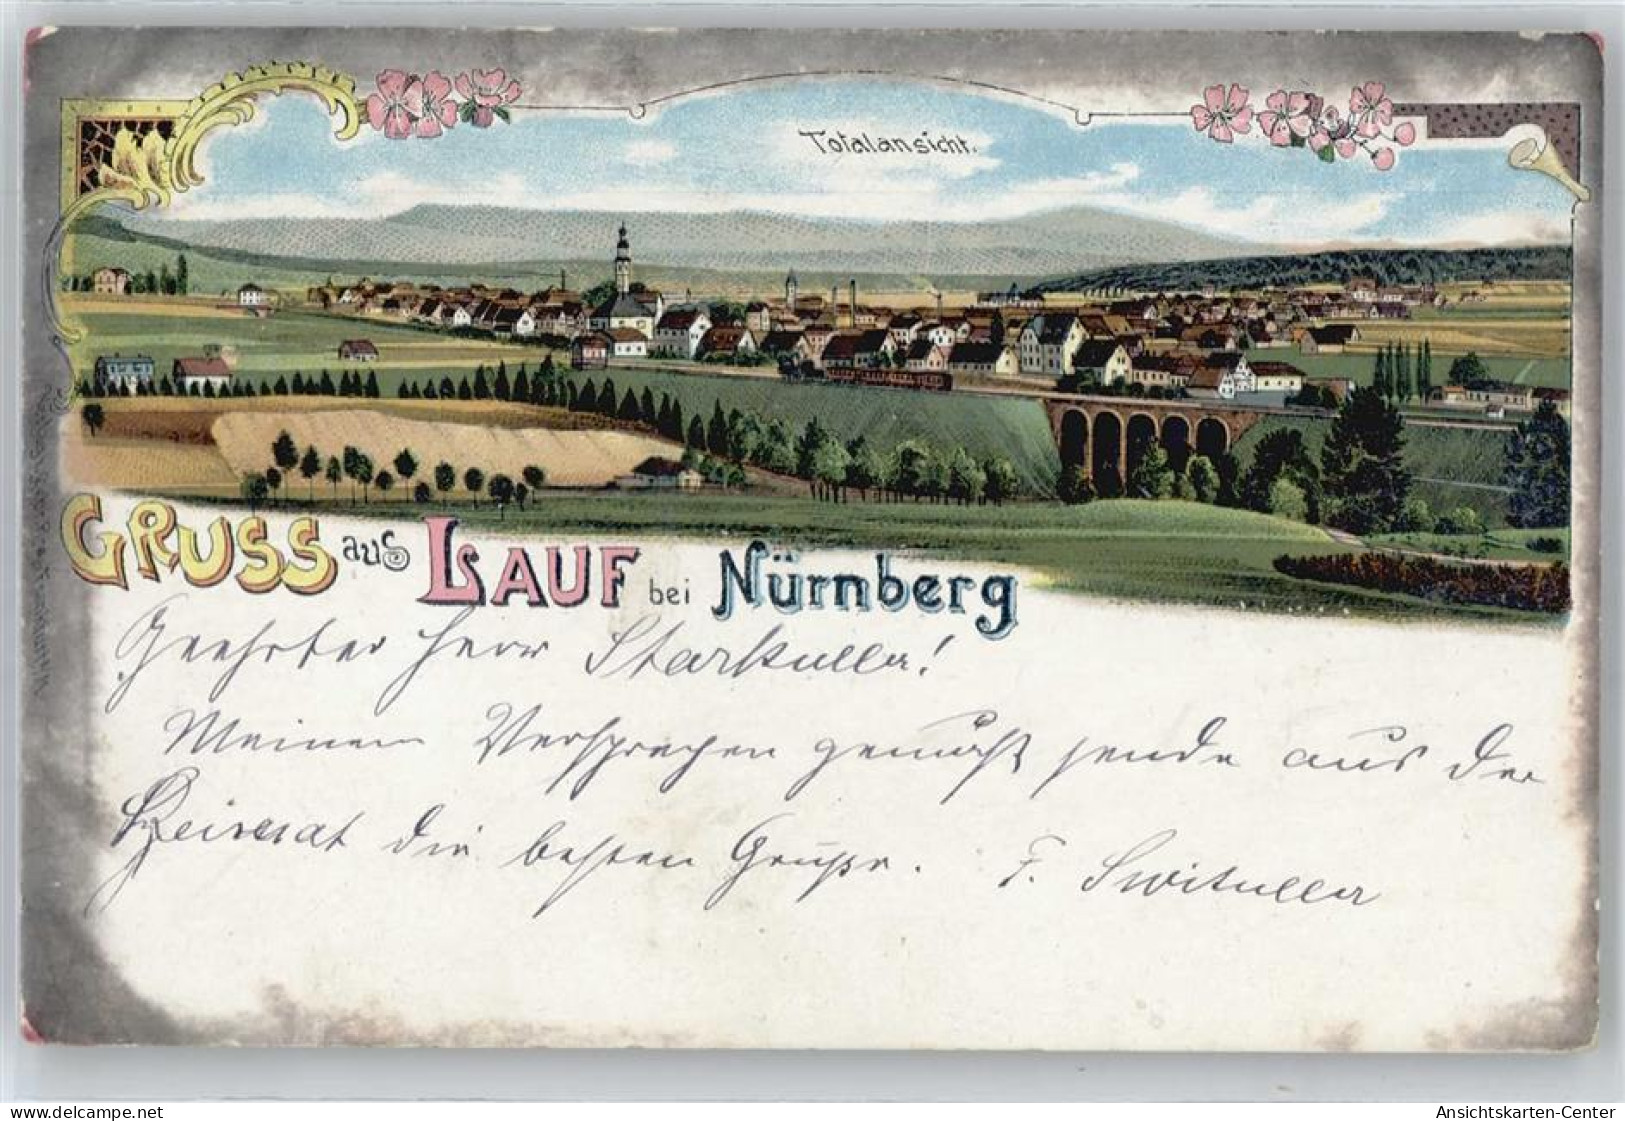 Totalansicht.
GRUSS aus LAUF bei Nürnberg
Geehrter Herr
Meinem Versprechen gemäß sende aus der
Heimat die besten Grüße. F.
www.delcampe.net
Ansichtskarten-Center